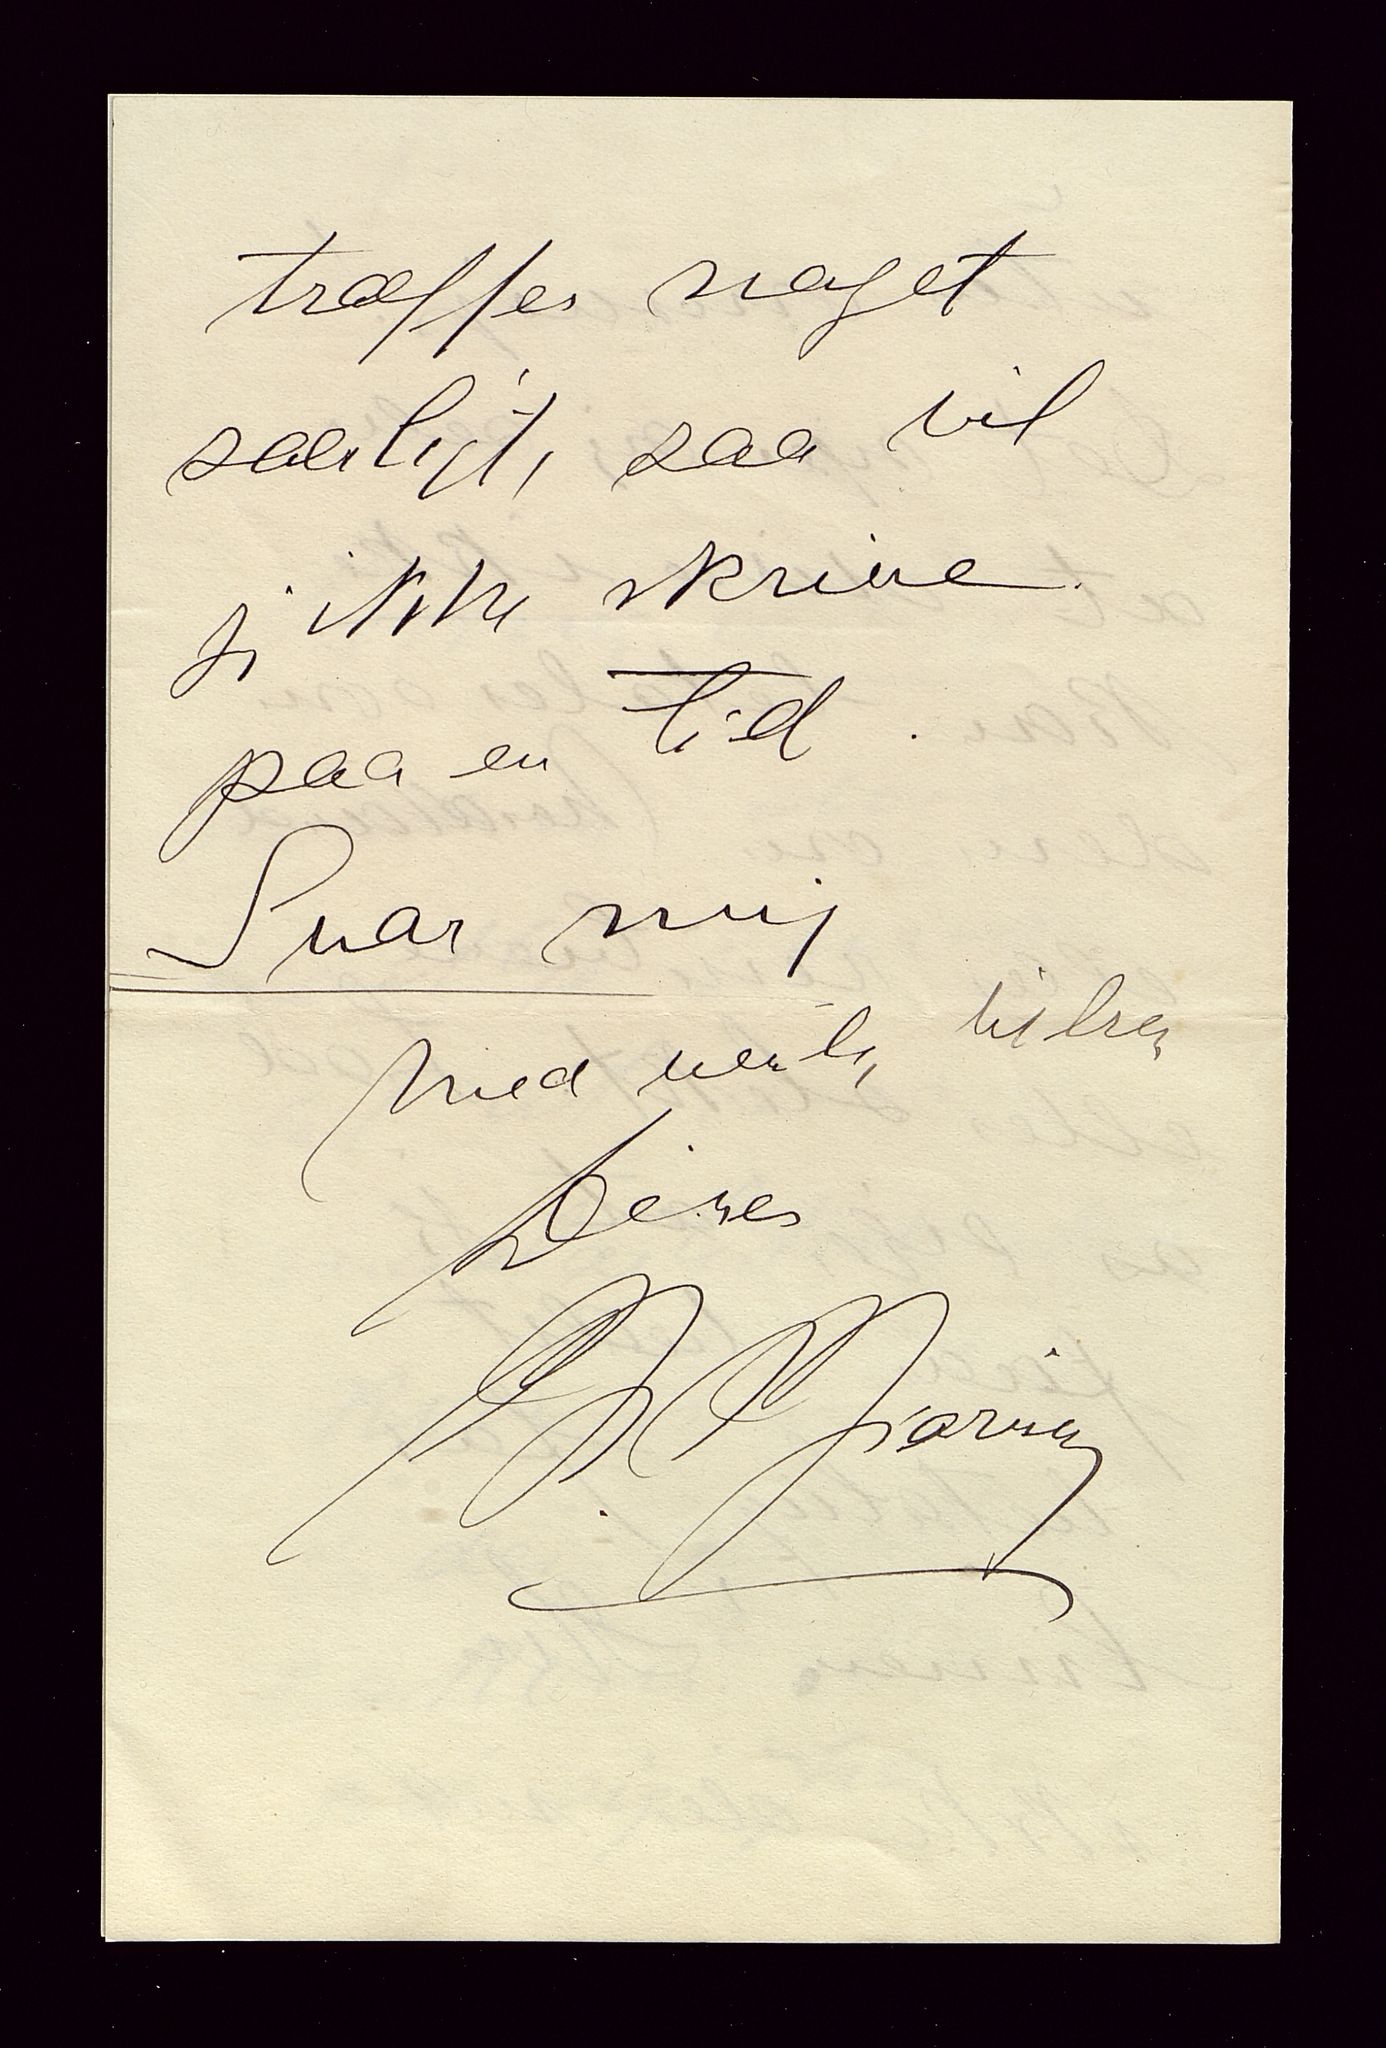 træffes noget
særligt, saa vil
j ikke skrive
paa en tid.
Svar mig
med venlig hilsen
Deres